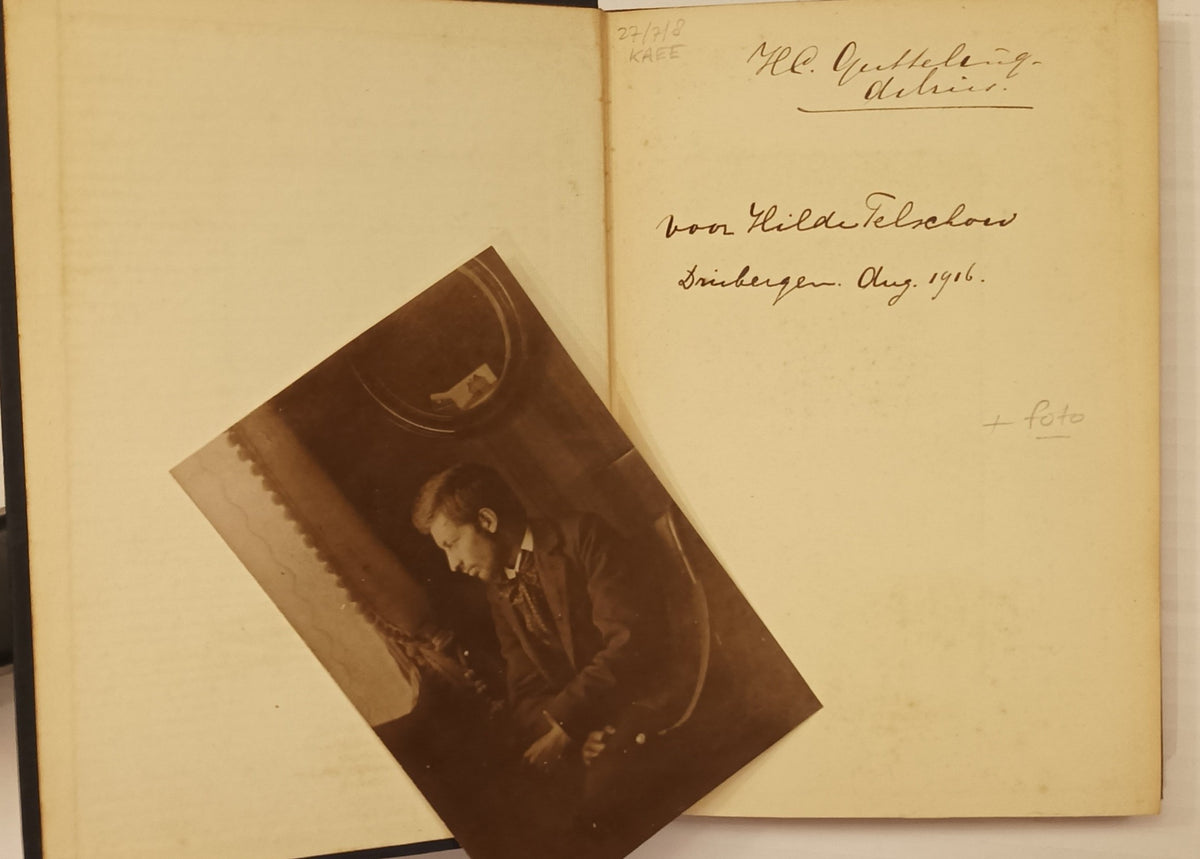 27/7/8
KAEE
H.C. Gutteling-
delius.
voor Hilde Telschow
Driebergen. Aug. 1916.
+ foto